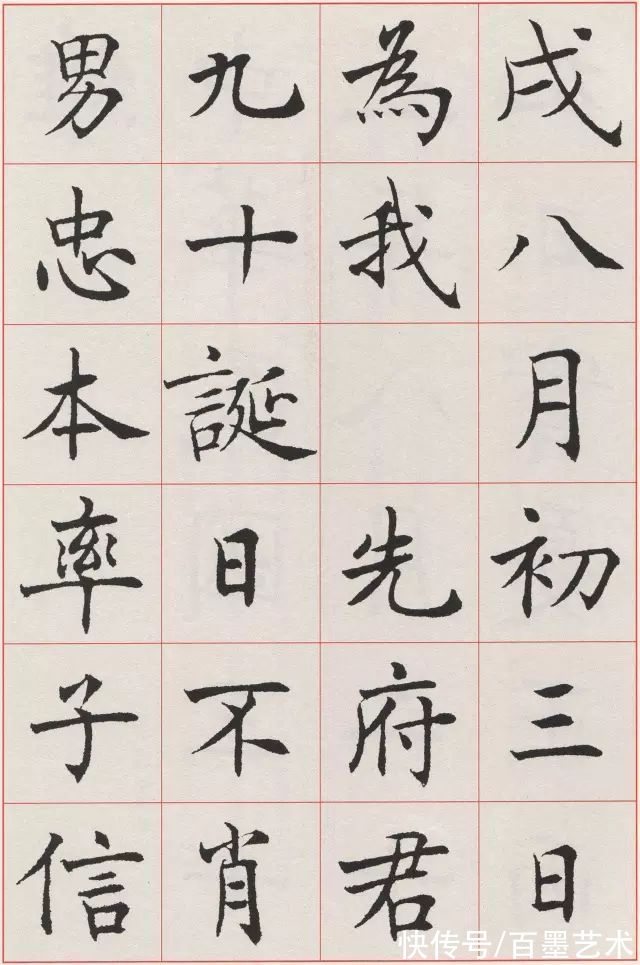 戌八月初三日
為我先府君
九十誕日不肖
男忠本率子信
快传号/百墨艺术